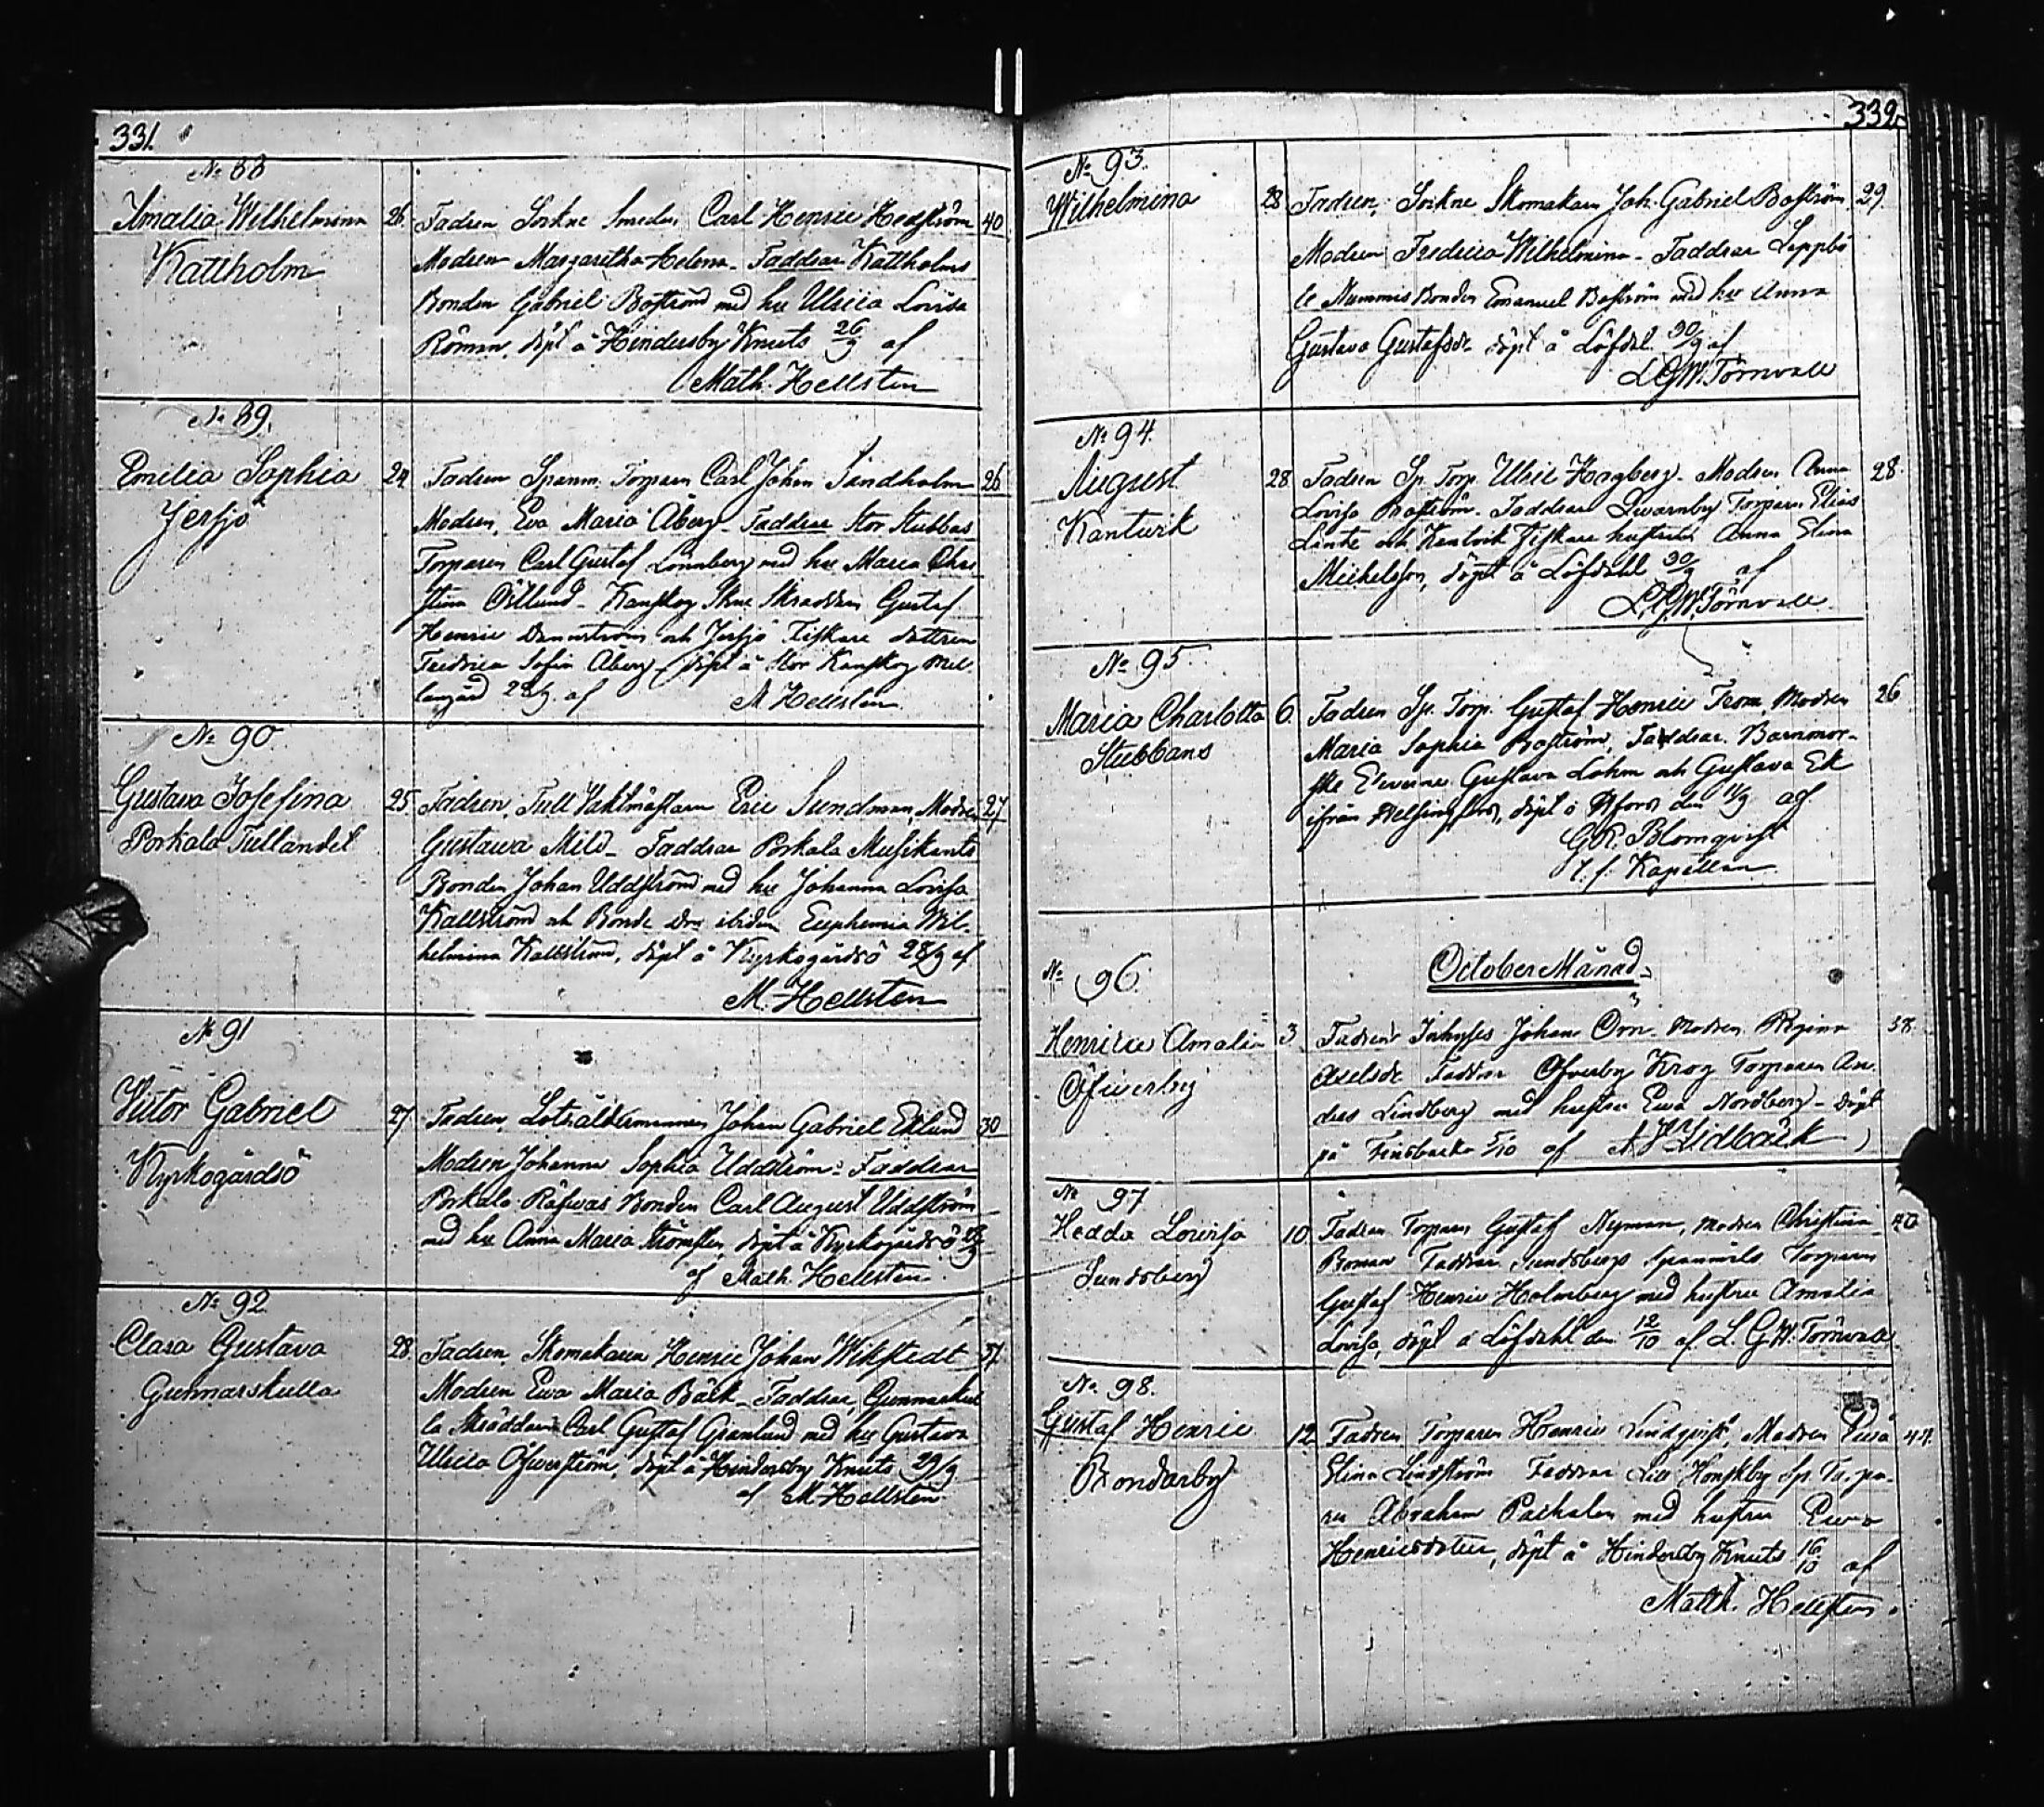 331.
No 88
Amalia Wilhelmina 26. Fadren Sockne Smeden Carl Henric Hedström 40
Kattholm Modren Margaretha Helena. Faddrar Kattholms
Bonden Gabriel Boström med hu Ulrica Lovisa
Röman, döpt å Hindersby Knuts 26/9 af
Math. Hellsten
No 89.
Emelia Sophia 24 Fadren Spanm. Torparn Carl Johan Sandholm 26
Jersjö Modren, Eva Maria Åberg. Faddrar Stor Stubbas
Torparen Carl Gustaf Lönnberg med hu Maria Chri
stina Östlund. Kanskog Skne Skräddarn Gustaf
Henric Dannström och Jersjö Fiskare dottren
Fredrica Sofia Åberg, döpt å Stor Kanskog Mel
langård 28/9 af M Hellsten
No 90
Gustava Josefina 25. Fadren, Tull Vaktmästarn Eric Sundman, Modren 27
Porkala Tullandet Gustawa Mild. Faddrar Porkala Musikants
Bonden Johan Uddström med hu Johanna Lovisa
Kallström och Bonde dtr ibidm Euphemia Wil-
helmina Kallström, döpt å Kyrkogårdsö 28/9 af
M. Hellsten
No 91
Victor Gabriel 27 Fadren, Lotsåldermannen Johan Gabriel Eklund 30
Kyrkogårdsö Modren Johanna Sophia Uddström. Faddrar
Porkala Räfwas Bonden Carl August Uddström
med hu Anna Maria Strömsten, döpt å Kyrkogårdsö 28/9
af Math. Hellsten
No 92
Clara Gustava 28. Fadren, Skomakaren Henric Johan Wikstedt 37
Gunnarskulla Modren Ewa Maria Bäck. Faddrar, Gunnarskul
la Skräddaren Carl Gustaf Granlund med hu Gustava
Ulrica Öfverström, döpt å Hindersby Knuts 29/9
af M Hellsten
332.
No 93.
Wilhelmina 28 Fadren, Sockne Skomakarn Joh. Gabriel Boström 29
Modren Fredrica Wilhelmina. Faddrar Leppbö
le Nummis Bonden Emanuel Boström med hu Anna
Gustava Gustafsdr döpt å Löfdal 30/9 af
L.G.W. Törnvall
No 94.
August 28 Fadren Sp. Torp. Ulric Hagberg. Modren Anna 28
Kantvik Lovisa Boström. Faddrar Dwarnby Torparn Elias
Linke och Kantvik Fiskare hustrun Anna Stina
Michelsson, döpt å Löfdahl 30/9 af
L.G.W. Törnvall
No 95
Maria Charlotta 6. Fadren Sp. Torp. Gustaf Henric From Modren 26
Stubbans Maria Sophia Boström, Faddrar. Barnmor-
ske Eleverne Gustava Lohm och Gustava Ek
ifrån Helsingfors, döpt i Hfors den 11/9 af
G.R. Blomqvist
t.f. Kapellan
No 96. October Månad
Henrica Amalia 3 Fadren Inhyses Johan Örn. Modren Regina 38.
Öfverby Axelsdr Faddrar Öfverby Krog Torparen An-
ders Lindberg med hustru Ewa Nordberg. Döpt
på Finsbacka 5/10 af A W Lidbäck
No 97
Hedda Lovisa 10. Fadren Torparen Gustaf Nyman, Modren Christina 40
Sundsberg Boman Faddrar Sundsbergs Spanmåls Torparen
Gustaf Henric Holmberg med hustru Amalia
Lovisa, döpt å Löfdahl den 12/10 af L.G.W. Törnvall
No 98.
Gustaf Henric 12 Fadren Torparen Henric Lindqvist, Modren Eva 44.
Bondarby Stina Lindström Faddrar Lill Kanskby Sp. Torpa-
ren Abraham Paskalen med hustru Eva
Henricsdotter, döpt å Hindersby Knuts 16/10 af
Matth. Hellsten.